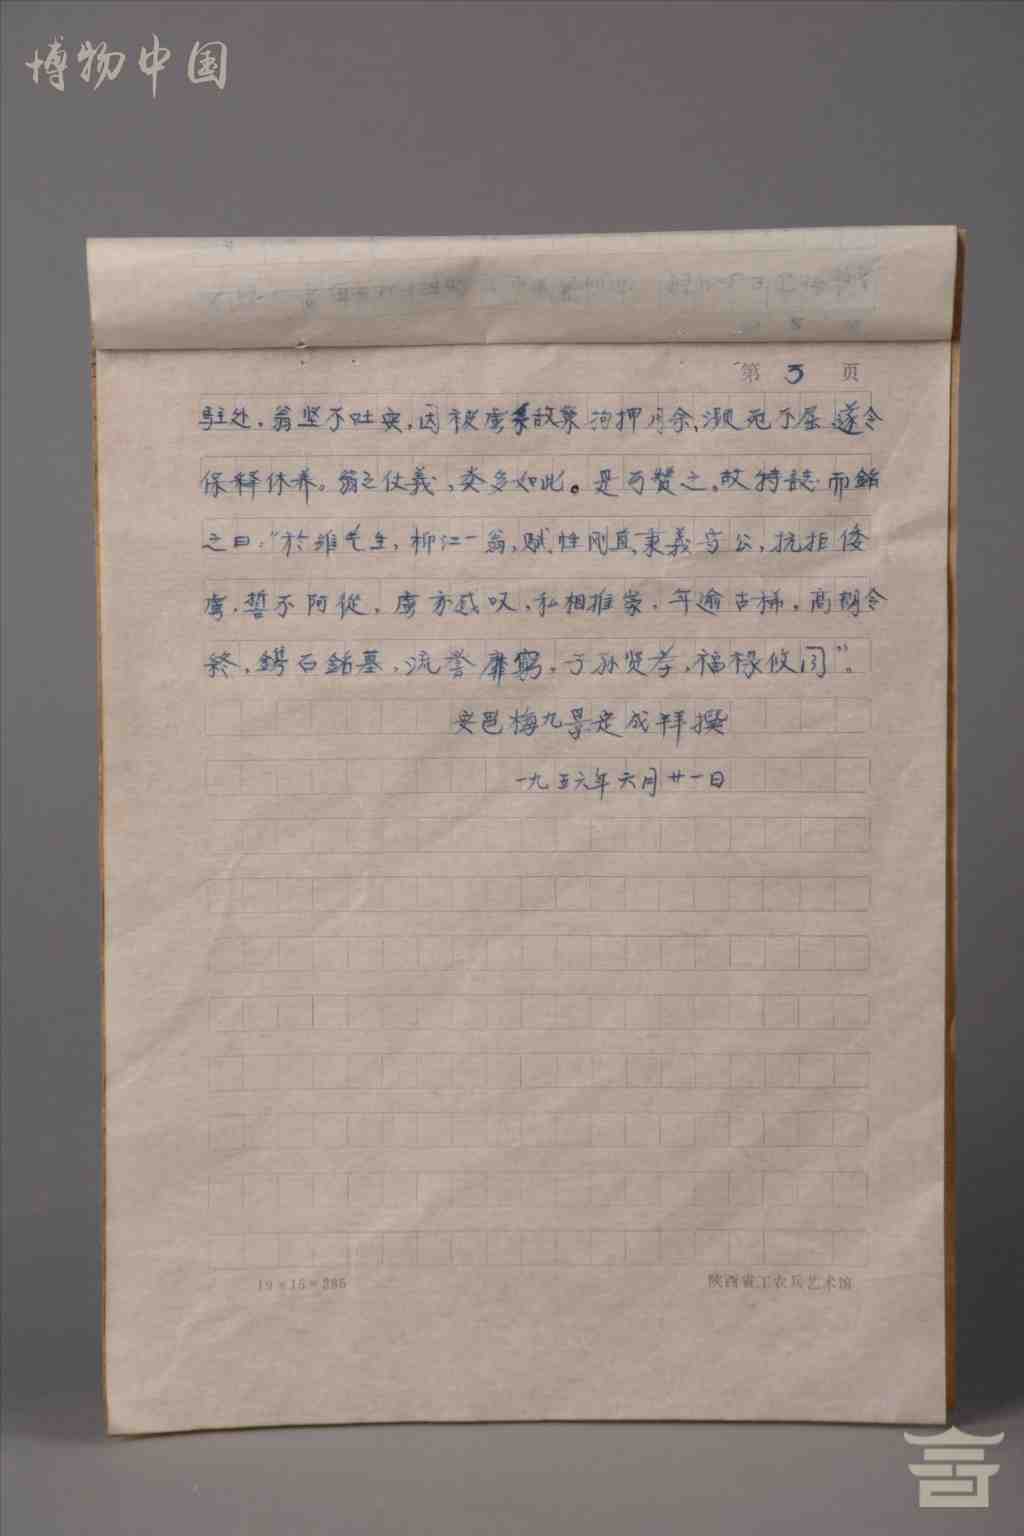 博物中国
第 3 页
驻处，翁坚不吐实，因被虏 故 拘押月余、濒死不屈遂令
保释休养。翁之仗義，类多如此。是可赞之。故特誌而銘
之曰：“於维先生，柳江一翁，赋性刚直、秉義守公，抗拒倭
虏，誓不阿從，虏方感叹，私相推崇，年逾古稀，高朗令
终，鐫石銘墓，流誉靡窮，子孙贤孝，福禄攸同”。
安邑梅九景定成拜撰
一九五六年六月廿一日
19×15=285
陕西省工农兵艺术馆